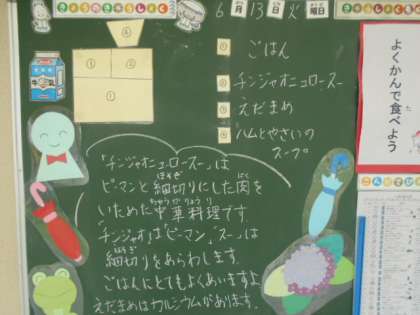 きょうのきゅうしょく
6月13日火曜日
④
③ ②
①
① ごはん
② チンジャオニュロースー
③ えだまめ
④ ハムとやさいの
スープ
よくかんで食べよう
「チンジャオニュロースー」は
ピーマンと細切りにした肉を
いためた中華料理です。
「チンジャオ」は「ピーマン」、「スー」は
細切りをあらわします。
ごはんにとてもよくあいますよ
えだまめはカルシウムがあります。